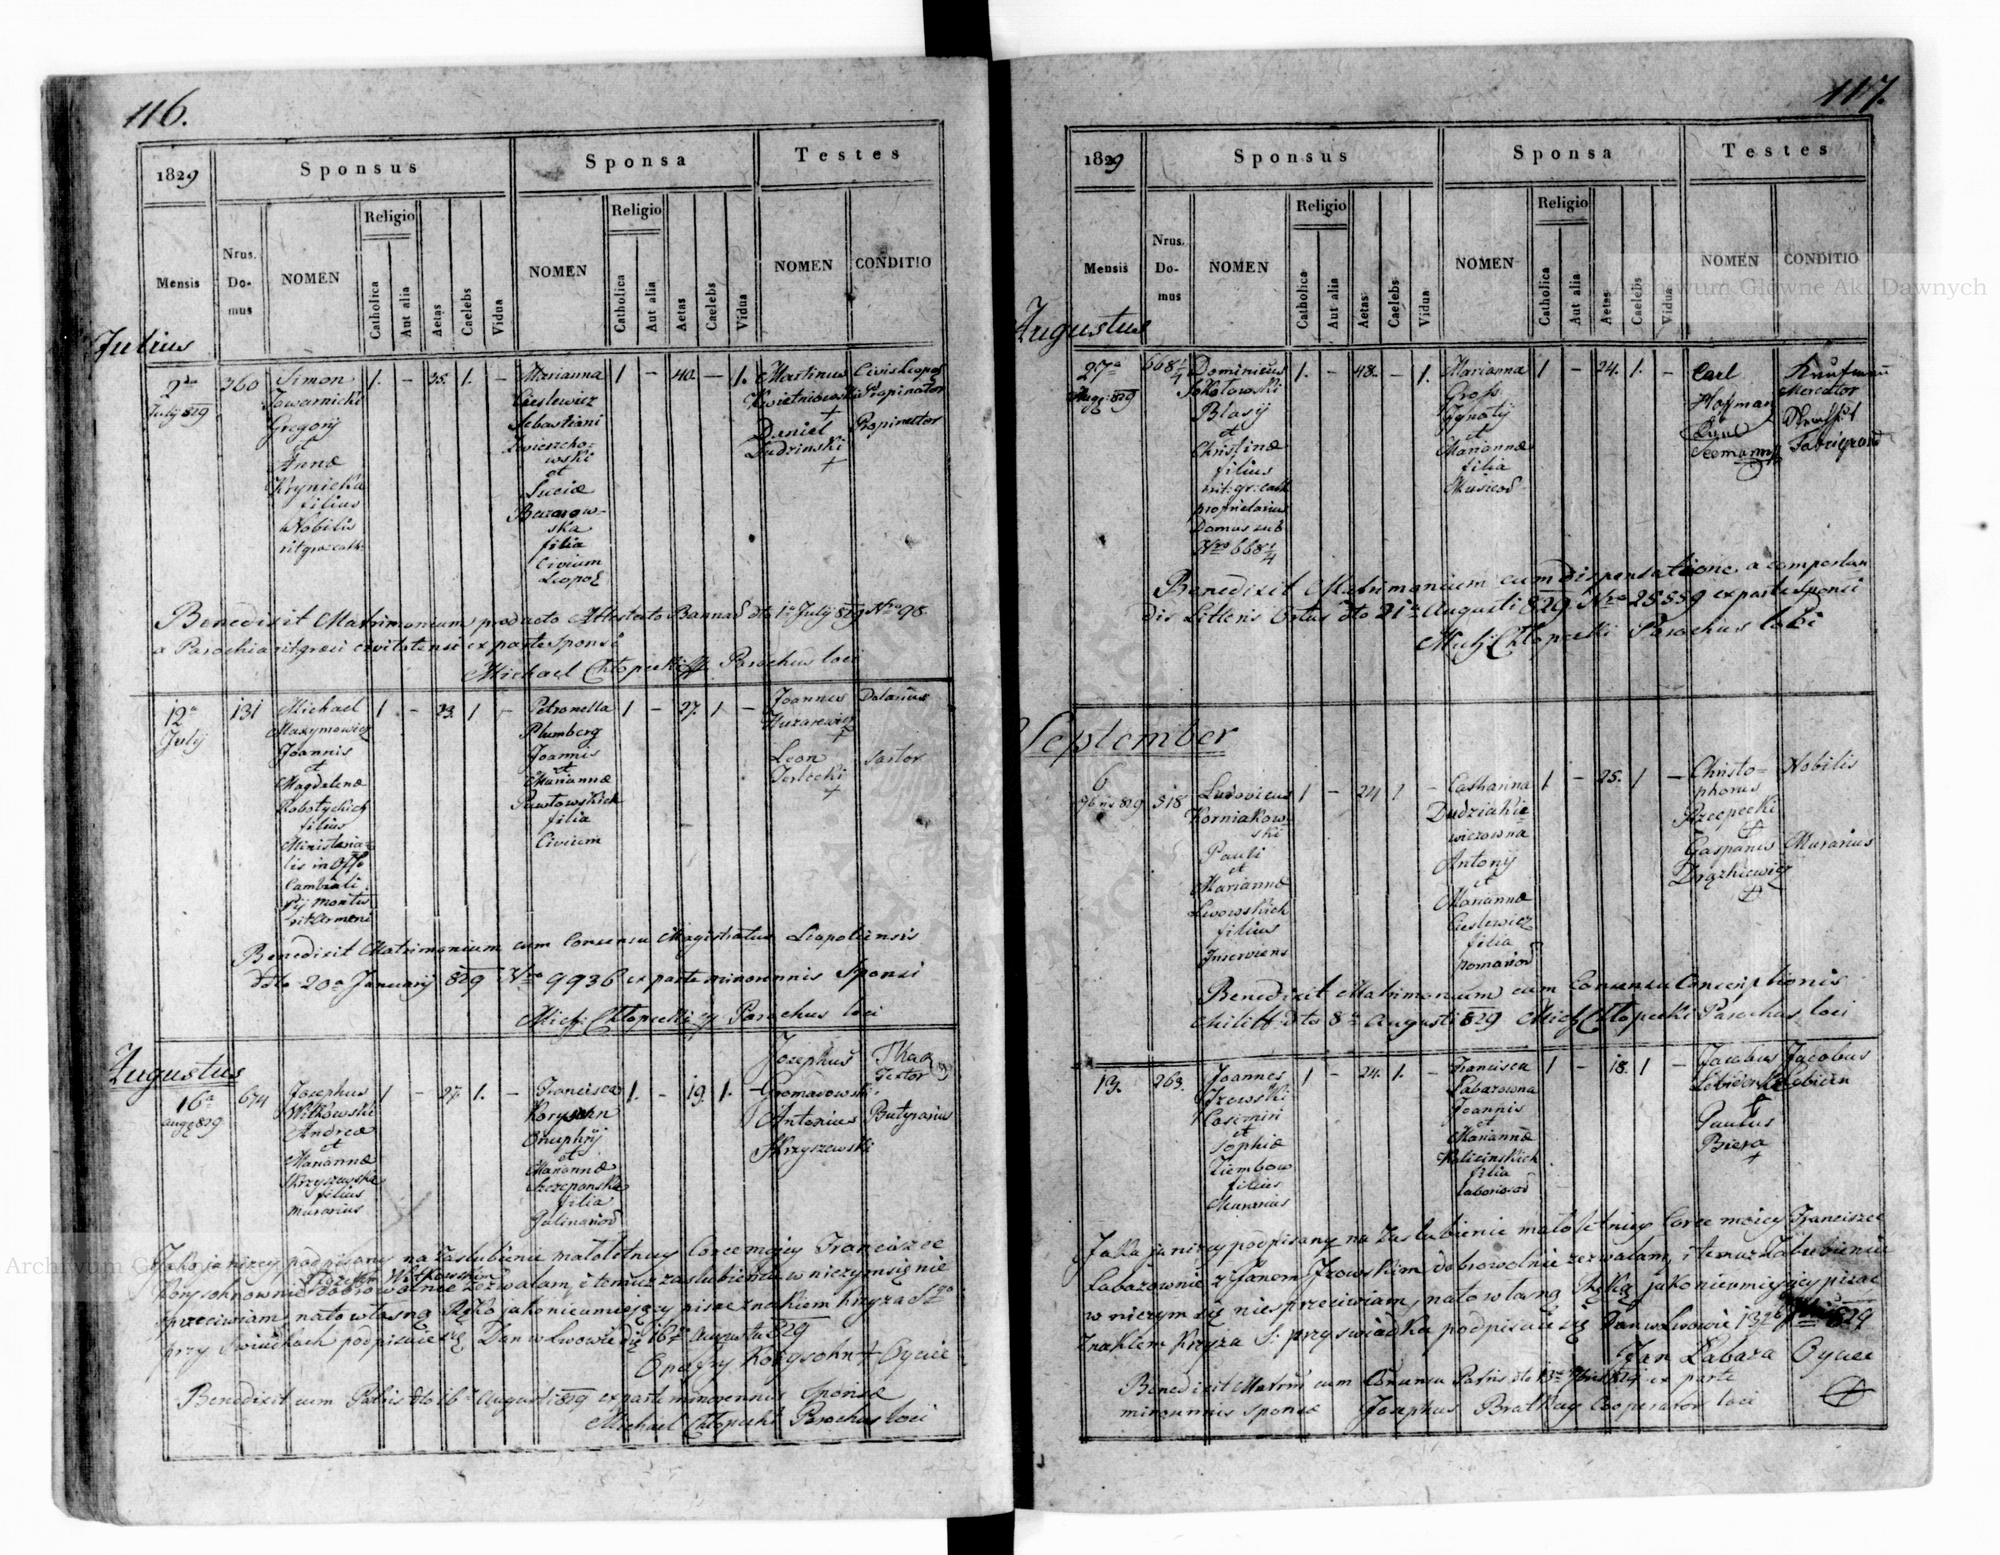 116.
1829
Sponsus
Sponsa
Testes
Mensis
Nrus. Domus
NOMEN
Religio
Catholica
Aut alia
Aetas
Caelebs
Vidua
NOMEN
Religio
Catholica
Aut alia
Aetas
Caelebs
Vidua
NOMEN
CONDITIO
Julius
2da
July 829
260
Simon
Towarnicki
Gregorij
Annæ
Krynicka
filius
Nobilis
1. - 35. 1. -
Marianna
Cieslewicz
Sebastiani
Zwierzcho-
wski
et
Luciæ
ska
filia
Civium
Leopol
1 - 40. - 1.
Martinus
Kwietniowski
+
Daniel
Dudzinski
+
Civis Leopol
Propinator
Propinator
Benedixit Matrimonium producto Attestato Bannor dto 1a July 829 Nro 98
a Parochia rit græci civitatensi ex parte sponsi
Michael Chłopecki Parochus loci
12a
July
131
Michael
Maxymowicz
Joannis
et
Magdalenæ
Robotyckich
filius
Ministeria-
lis in Offo
Cambiali
Pij Montis
rit Armeni
1 - 23. 1 -
Petronella
Plumberg
Joannis
et
Mariannæ
Pawłowskich
filia
Civium
1 - 27. 1 -
Joannes
Huzarewicz
+
Leon
Terlecki
+
Dolarius
Sartor
Benedixit Matrimonium cum Consensu Magistratus Leopoliensis
ddto 20a January 829 Nro 9936 ex parte minorennis Sponsi
Mich: Chłopecki Parochus loci
Augustus
16a
aug 829
674
Josephus
Witkowski
Andreæ
et
Mariannæ
Skrzyszewska
filius
murarius
1 - 27. 1. -
Francisca
Korysohn
Onuphrij
et
Mariannæ
Szczepanska
filia
Galinariod
1. - 19. 1. -
Josephus
Gromadowski
Antonius
Skrzyszewski
Textor
Butyrarius
Jako ja nizey podpisany na Zaslubienie małoletniey Corce moiey Franciszce
Józefem Witkowskim
Korysohnownie dobrowolnie zezwalam, i temuż zaslubieniu w niczym się nie
sprzeciwiam, na to własną Ręką jako nieumiejący pisac znakiem krzyża S:go
przy Swiadkach podpisuie się Dan w Lwowie d 16go Augusta 829
Onofry Korysohn + Oyciec
Benedixit cum Patris dto 16a Augusti 829 ex parte minorennis Sponsæ
Michael Chłopecki Parochus loci
117.
1829
Sponsus
Sponsa
Testes
Mensis
Nrus. Domus
NOMEN
Religio
Catholica
Aut alia
Aetas
Caelebs
Vidua
NOMEN
Religio
Catholica
Aut alia
Aetas
Caelebs
Vidua
NOMEN
CONDITIO
Archiwum Główne Akt Dawnych
Augustus
27a
Aug: 829
668 1/4
Dominicus
Sokołowski
Blasij
et
Christinæ
filius
rit: gr: cath
proprietarius
Domus sub
Nro 668 1/4
1. - 48. - 1.
Marianna
Gross
Ignatij
et
Mariannæ
filia
Musicod
1 - 24. 1. -
Carl
Hofman
Seemann
Kaufmann
Mercator
Fabrigrand
Benedixit Matrimonium cum dispensatione a comportan
dis Litteris Ortus dto 21a Augusti 829 Nro 25859 ex parte Sponsi
Mich Chłopecki Parochus loci
September
6
9bris 829
518
Ludovicus
Korniakow-
ski
Pauli
et
Mariannæ
Lwowskich
filius
Inserviens
1 - 24 1 -
Catharina
Dudziakie-
wiczowna
Antonij
et
Mariannæ
Cieslewicz
filia
pomariod
1 - 25. 1 -
Christo-
phorus
Rzepecki
+
Gasparus
Drążkiewicz
+
Nobilis
Murarius
Benedixit Matrimonium cum Consensu Conscriptionis
Militt dto 8a Augusti 829 Mich Chłopecki Parochus loci
13.
263.
Joannes
Jzowski
Casimiri
et
Sophiæ
Ziembow
filius
Murarius
1 - 24. 1. -
Francisca
Łabazowna
Joannis
et
Mariannæ
Kalicinskich
filia
laboriosod
1 - 18. 1 -
Jacobus
+
Paulus
Biega
+
Jacobus
Jako ja nizey podpisany na Zaslubienie małoletniey Corce moiey Franciszce
Łabazownie z Janem Jzowskim dobrowolnie zezwalam, i temuż Zaslubieniu
w niczym się niesprzeciwiam, na to własną Ręką jako nieumiejący pisac
Znakiem Krzyża S: przy swiadku podpisuie się Dan w Lwowie 13 829
Jan Łabaza Oyciec
Benedixit Matrim cum Consensu Patris dto 13a 829 ex parte
minorennis sponsæ Josephus Bratkay Cooperator loci
Archiwum Główne